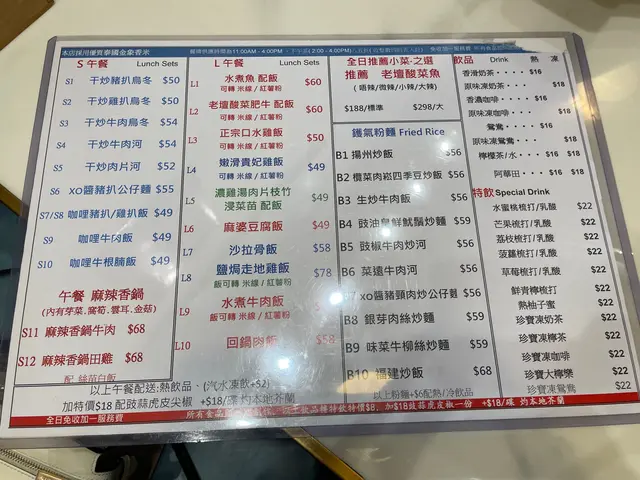 本店採用優質泰國金象香米
S 午餐 Lunch Sets
S1 干炒豬扒烏冬 $50
S2 干炒雞扒烏冬 $50
S3 干炒牛肉烏冬 $54
S4 干炒牛肉河 $54
S5 干炒肉片河 $52
S6 XO醬豬扒公仔麵 $55
S7/S8 咖哩豬扒/雞扒飯 $49
S9 咖哩牛肉飯 $49
S10 咖哩牛根腩飯 $49
午餐 麻辣香鍋
(內有芽菜, 窩筍, 雲耳, 金菇)
S11 麻辣香鍋牛肉 $68
S12 麻辣香鍋田雞 $68
配 絲苗白飯
L 午餐 Lunch Sets
L1 水煮魚 配飯 $60
可轉 米線 / 紅薯粉
L2 老壇酸菜肥牛 配飯 $60
可轉 米線 / 紅薯粉
L3 正宗口水雞飯 $50
可轉 米線 / 紅薯粉
L4 嫩滑貴妃雞飯 $49
L5 濃雞湯肉片枝竹
浸菜苗 配飯 $49
L6 麻婆豆腐飯 $49
L7 沙拉骨飯 $58
L8 鹽焗走地雞飯 $78
飯可轉 米線 / 紅薯粉
L9 水煮牛肉飯
飯可轉 米線 / 紅薯粉
L10 回鍋肉飯 $58
以上午餐配送:熱飲品、(汽水凍飲+$2)
加特價$18 配豉蒜虎皮尖椒 +$18/碟 灼本地芥蘭
全日推薦小菜·之選
推薦 老壇酸菜魚
(唔辣/微辣/小辣/大辣)
$188/標準 $298/大
鑊氣粉麵 Fried Rice
B1 揚州炒飯 $56
B2 欖菜肉崧四季豆炒飯 $56
B3 生炒牛肉飯 $56
B4 豉油皇鮮魷鬚炒麵 $59
B5 豉椒牛肉炒河 $56
B6 菜遠牛肉河 $56
B7 XO醬豬頸肉炒公仔麵 $56
B8 銀芽肉絲炒麵 $59
B9 味菜牛柳絲炒麵 $59
B10 福建炒飯 $68
以上粉麵+$6配熱/冷飲品
飲品 Drink 熱 凍
香滑奶茶 $16
原味凍奶茶 $18
香濃咖啡 $16
原味凍咖啡 $18
鴛鴦 $16
原味凍鴛鴦 $18
檸檬茶/水 $16 $18
阿華田 $16 $18
特飲 Special Drink
水蜜桃梳打/乳酸 $22
芒果梳打/乳酸 $22
荔枝梳打/乳酸 $22
菠蘿梳打/乳酸 $22
草莓梳打/乳酸 $22
鮮青檸梳打 $22
熱柚子蜜 $22
珍寶凍奶茶 $22
珍寶凍檸茶 $22
珍寶凍咖啡 $22
珍寶大檸樂 $22
珍寶凍鴛鴦 $22
加$18豉蒜虎皮椒一份 +$18/碟 灼本地芥蘭
全日免收加一服務費